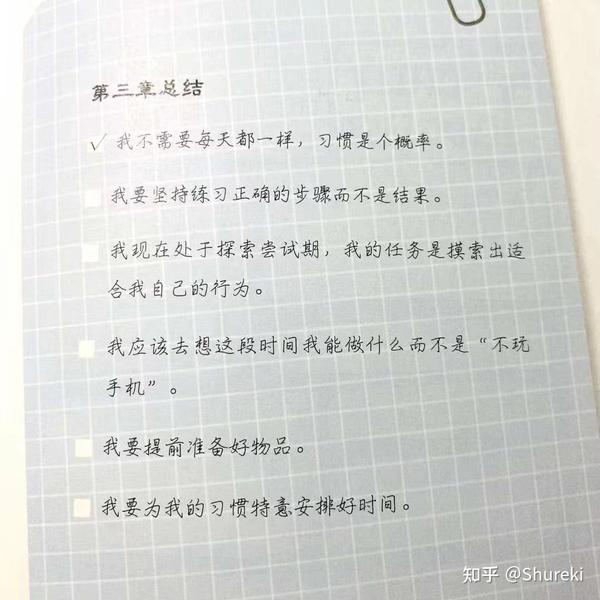 第三章总结
✓ 我不需要每天都一样，习惯是个概率。
我要坚持练习正确的步骤而不是结果。
我现在处于探索尝试期，我的任务是摸索出适
合我自己的行为。
我应该去想这段时间我能做什么而不是“不玩
手机”。
我要提前准备好物品。
我要为我的习惯特意安排好时间。
知乎 @Shureki